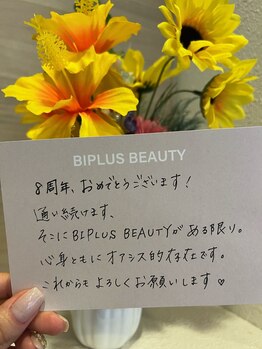 BIPLUS BEAUTY
8周年、おめでとうございます!
通い続けます、
そこにBIPLUS BEAUTYがある限り。
心身ともにオアシス的存在です。
これからもよろしくお願いします♡